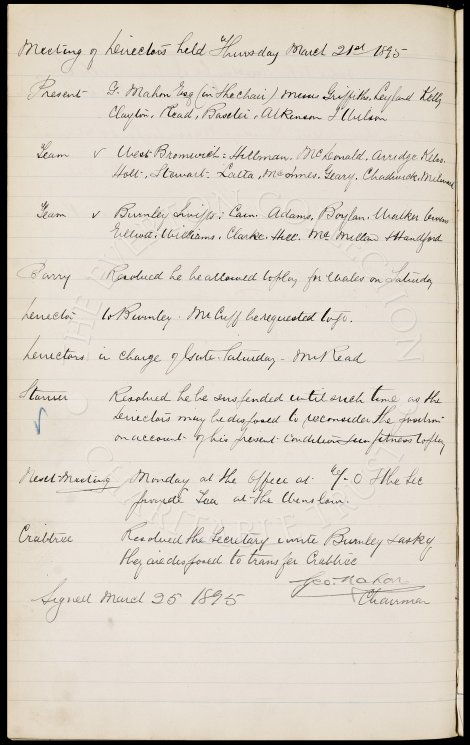 Meeting of Directors held Thursday March 21st 1895
Present G. Mahon Esq (in the chair) Messrs Griffiths, Leyland Kelly
Clayton, Read, Baxter, Atkinson & Wilson
Team v West Bromwich: Hillman. McDonald. Arridge Kelso.
Holt. Stewart. Latta. McInnes. Geary. Chadwick. Milward
Team v Burnley Swifts: Cain Adams, Boylan. Walker
Elliott. Williams. Clarke. Hill. McMillan & Handford
Parry Resolved he be allowed to play for Wales on Saturday
Director to Burnley. Mr Cuff be requested to go.
Directors in charge of Gate. Saturday - Mr Read
Starrier Resolved he be suspended until such time as the
Directors may be disposed to reconsider the position
on account of his present condition & unfitness to play
Next Meeting Monday at the Office at & the Sec
provide Tea at the Winslow.
Crabtree Resolved the Secretary write Burnley & ask if
they are disposed to transfer Crabtree
Geo. Mahon
Signed March 25 1895 Chairman
THE EVERTON COLLECTION
CHARITABLE TRUST